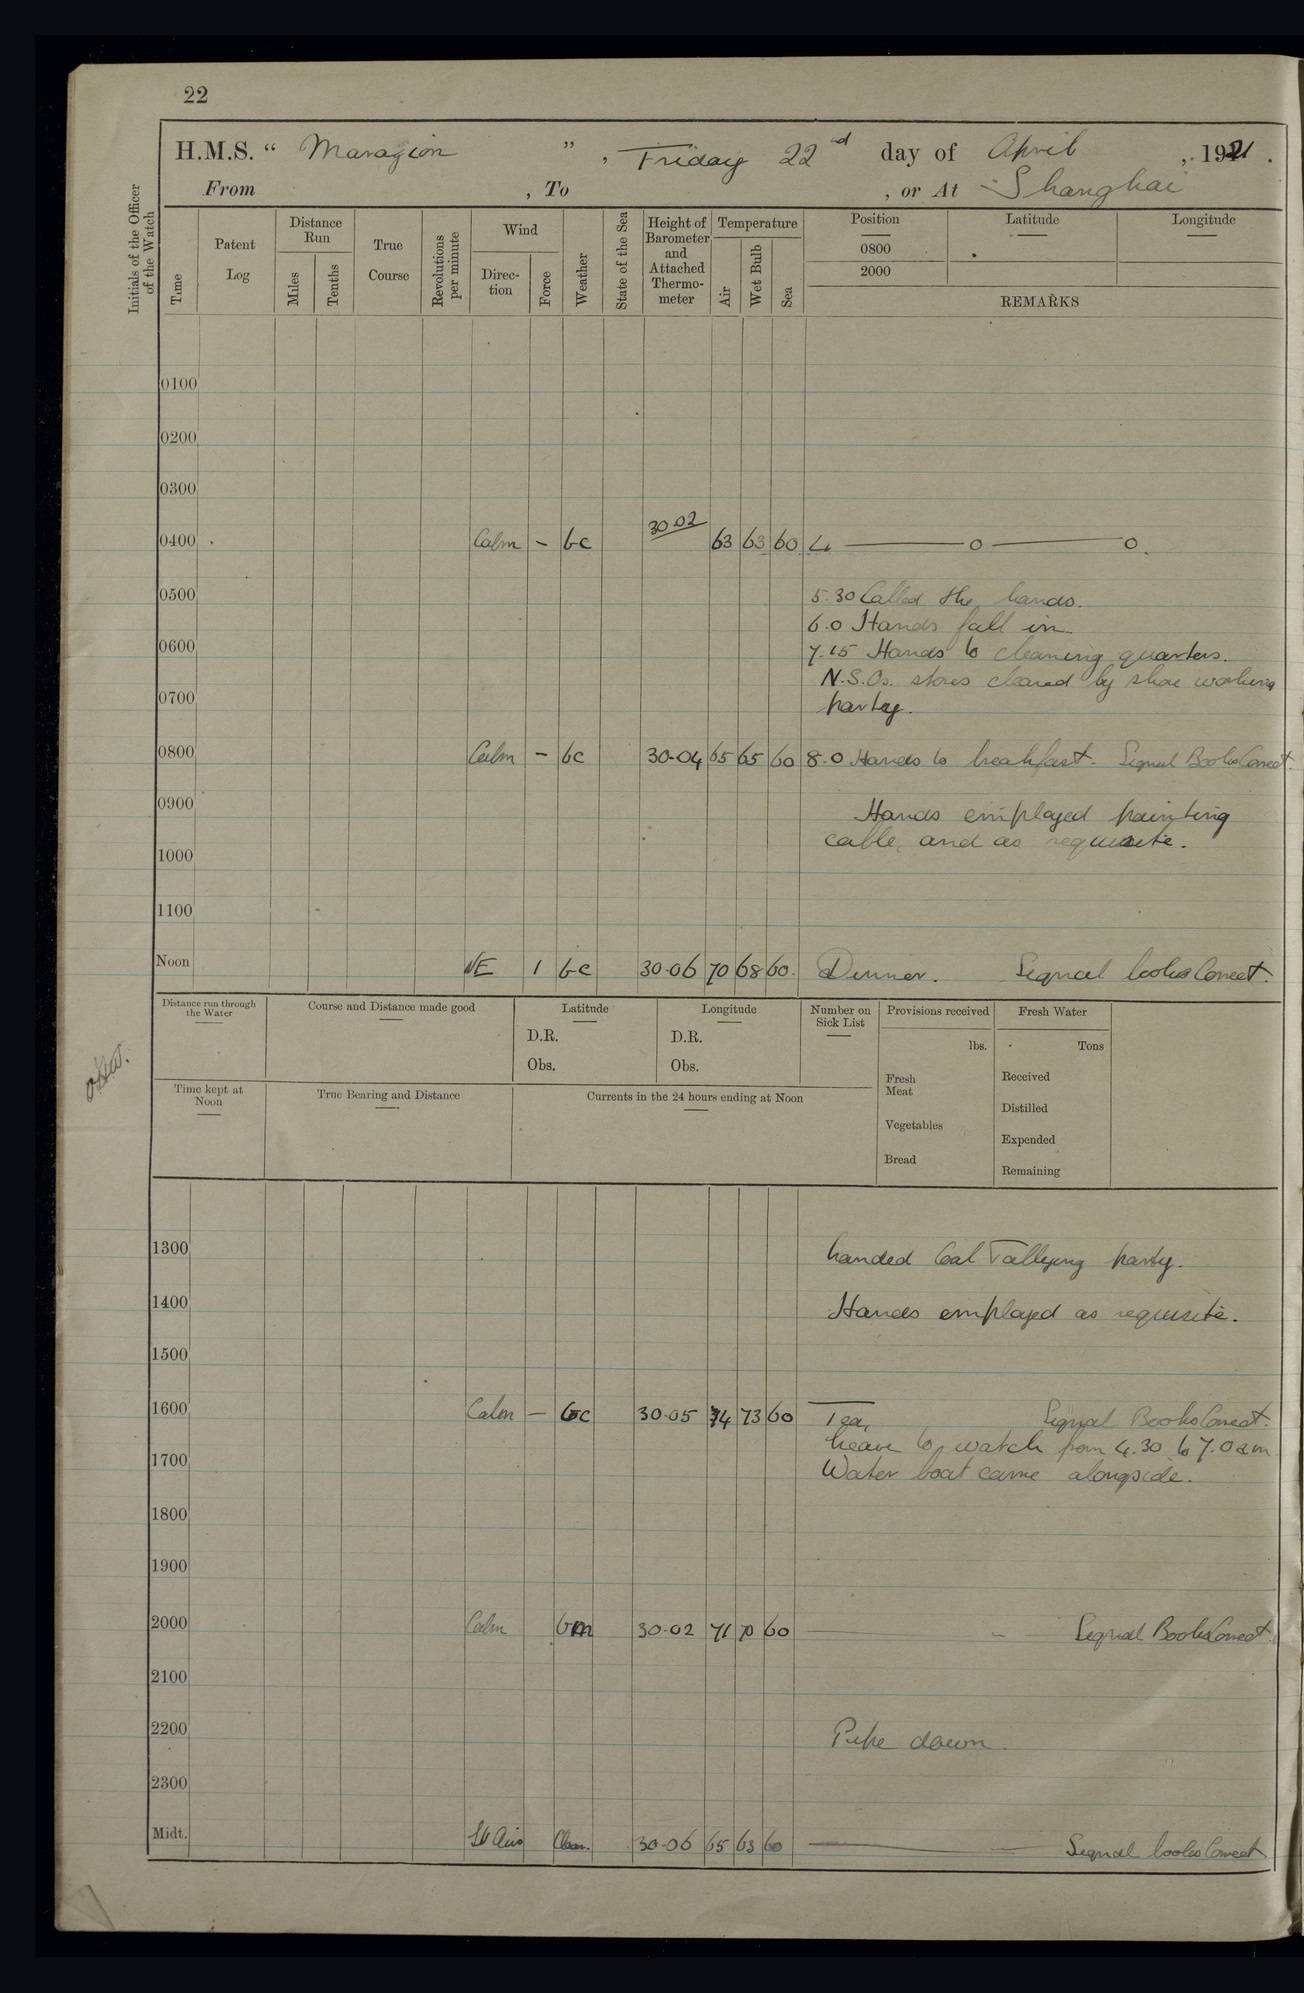 22
H.M.S. “ Marazion ” , Friday 22nd day of April , 1921 .
From , To , or At Shanghai
Initials of the Officer of the Watch
Time
Patent Log
Distance Run
Miles
Tenths
True Course
Revolutions per minute
Wind
Direc-tion
Force
Weather
State of the Sea
Height of Barometer and Attached Thermo-meter
Temperature
Air
Wet Bulb
Sea
Position Latitude Longitude
0800
2000
REMARKS
0100
0200
0300
0400 Calm - bc 30.02 63 63 60 4 — o — o
0500 5.30 Called the hands.
6.0 Hands fall in.
0600 7.15 Hands to cleaning quarters.
N.S.Os. stores cleared by shore working
0700 party.
0800 Calm - bc 30.04 65 65 60 8.0 Hands to breakfast. Signal Books Correct.
0900 Hands employed painting
cable, and as requisite.
1000
1100
Noon NE 1 bc 30.06 70 68 60. Dinner. Signal books Correct.
Distance run through the Water
Course and Distance made good
Latitude
D.R.
Obs.
Longitude
D.R.
Obs.
Number on Sick List
Provisions received
lbs.
Fresh Meat
Vegetables
Bread
Fresh Water
Tons
Received
Distilled
Expended
Remaining
Time kept at Noon
True Bearing and Distance
Currents in the 24 hours ending at Noon
1300 Landed Coal Tallying party.
1400 Hands employed as requisite.
1500
1600 Calm — bc 30.05 74 73 60 Tea, Signal Books Correct.
Leave to watch from 4.30 to 7.0 am
1700 Water boat came alongside.
1800
1900
2000 Calm bm 30.02 71 70 60 — Signal Books Correct.
2100
2200 Pipe down.
2300
Midt. Lt Airs Clear. 30.06 65 63 60 — Signal books Correct